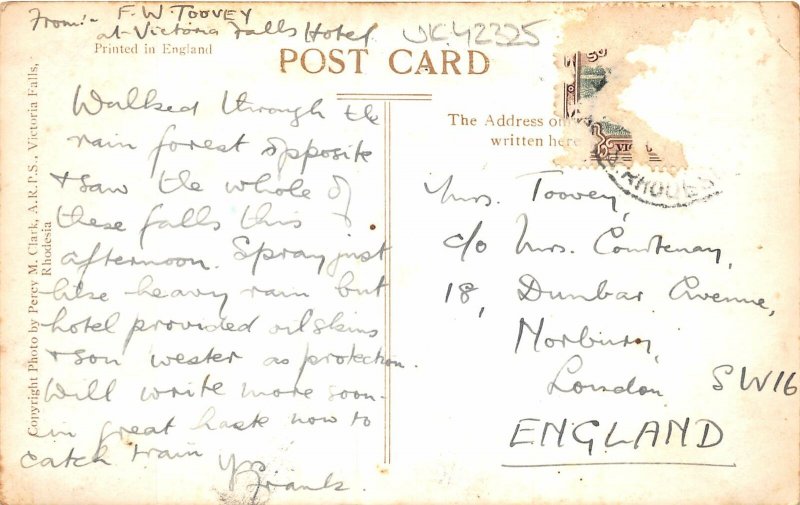 From:- F. W TOOVEY
at Victoria Falls Hotel.
UK42325
Printed in England
POST CARD
Copyright Photo by Percy M. Clark, A.R.P.S., Victoria Falls,
Rhodesia
Walked through the
rain forest opposite
& saw the whole of
these falls this
afternoon. Spray just
like heavy rain but
hotel provided oilskins
& sou wester as protection.
Will write more soon-
in great haste now to
catch train
Yrs
Frank.
The Address
written here
RHODES
Mrs. Toovey,
c/o Mrs. Courtenay,
18, Dunbar Avenue,
Norbury,
London SW16
ENGLAND